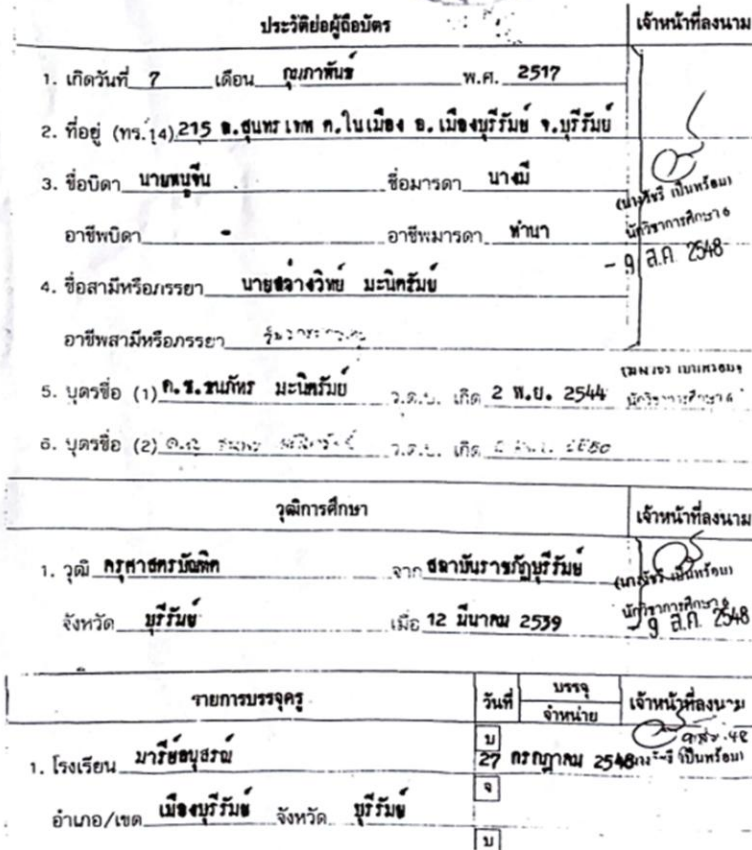 ประวัติย่อผู้ถือบัตร เจ้าหน้าที่ลงนาม
1. เกิดวันที่ 7 เดือน กุมภาพันธ์ พ.ศ. 2517
2. ที่อยู่ (ทร.14) 215 ถ.สุนทรเทพ ต.ในเมือง อ.เมืองบุรีรัมย์ จ.บุรีรัมย์
3. ชื่อบิดา นายหนูจีน ชื่อมารดา นางมี
อาชีพบิดา - อาชีพมารดา ทำนา
(นางวัชรี เป็นพร้อม)
นักวิชาการศึกษา 6
- 9 ส.ค. 2548
4. ชื่อสามีหรือภรรยา นายสว่างวิทย์ มะนิตรัมย์
อาชีพสามีหรือภรรยา
5. บุตรชื่อ (1) ด.ช.ชนภัทร มะนิตรัมย์ ว.ด.ป. เกิด 2 พ.ย. 2544
นักวิชาการศึกษา 6
6. บุตรชื่อ (2) ว.ด.ป. เกิด
วุฒิการศึกษา เจ้าหน้าที่ลงนาม
1. วุฒิ ครุศาสตรบัณฑิต จาก สถาบันราชภัฏบุรีรัมย์
(นางวัชรี เป็นพร้อม)
จังหวัด บุรีรัมย์ เมื่อ 12 มีนาคม 2539
นักวิชาการศึกษา 6
- 9 ส.ค. 2548
รายการบรรจุครู วันที่ บรรจุ จำหน่าย เจ้าหน้าที่ลงนาม
บ
1. โรงเรียน มารีย์อนุสรณ์ 27 กรกฎาคม 2548
จ
อำเภอ/เขต เมืองบุรีรัมย์ จังหวัด บุรีรัมย์
บ